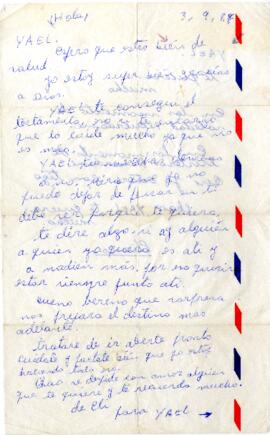 (Hola) 3, 9, 84
YAEL.
Espero que estes bien de
salud.
yo estoy super bien gracias
a Dios.
YAEL te consegui el
testamento,
que lo cuide mucho ya que
es mio.
YAEL
puedo dejar de pensar en ti
debe ser porque te quiero,
te dire algo, si ay alguien
a quien yo quiero es a ti y
a nadien más, por eso quisiera
estar siempre junto a ti.
bueno veremo que sorpresa
nos prepara el destino mas
adelante.
tratare de ir a verte pronto
cuidate y portate bien que yo estoy
haciendo todo
Chao se despide con amor alguien
que te quiere y te recuerda mucho.
de Eli
para YAEL →